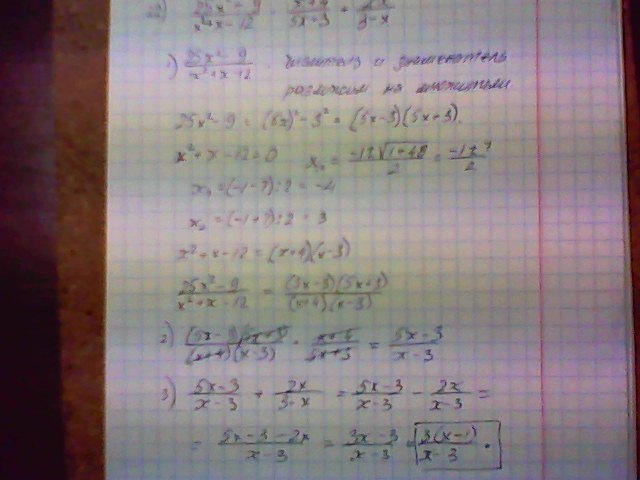 25x² - 9 / x² + x - 12 · x+4 / 5x+3 + 2x / 3-x
1) 25x² - 9 / x² + x - 12 . Числитель и знаменатель
разложим на множители
25x² - 9 = (5x)² - 3² = (5x-3)(5x+3).
x² + x - 12 = 0 x₁,₂ = -1±√1+48 / 2 = -1±7 / 2
x₁ = (-1-7):2 = -4
x₂ = (-1+7):2 = 3
x² + x - 12 = (x+4)(x-3)
25x² - 9 / x² + x - 12 = (5x-3)(5x+3) / (x+4)(x-3)
2) (5x-3)(5x+3) / (x+4)(x-3) · x+4 / 5x+3 = 5x-3 / x-3
3) 5x-3 / x-3 + 2x / 3-x = 5x-3 / x-3 - 2x / x-3 =
= 5x-3-2x / x-3 = 3x-3 / x-3 = 3(x-1) / x-3 .